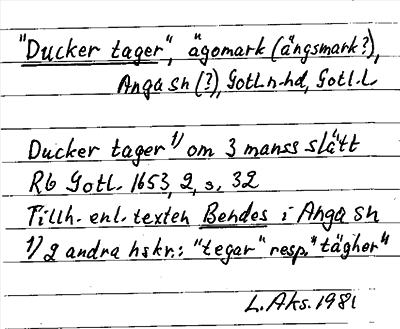 "Ducker tager", ägomark (ängsmark?),
Anga sn (?), Gotl. n. hd, Gotl. L.
Ducker tager 1) om 3 manss slått
Rb Gotl. 1653, 2, s. 32
Tillh. enl. texten Bendes i Anga sn
1) 2 andra hskr.: "tegar" resp. "tägher"
L. Aks. 1981